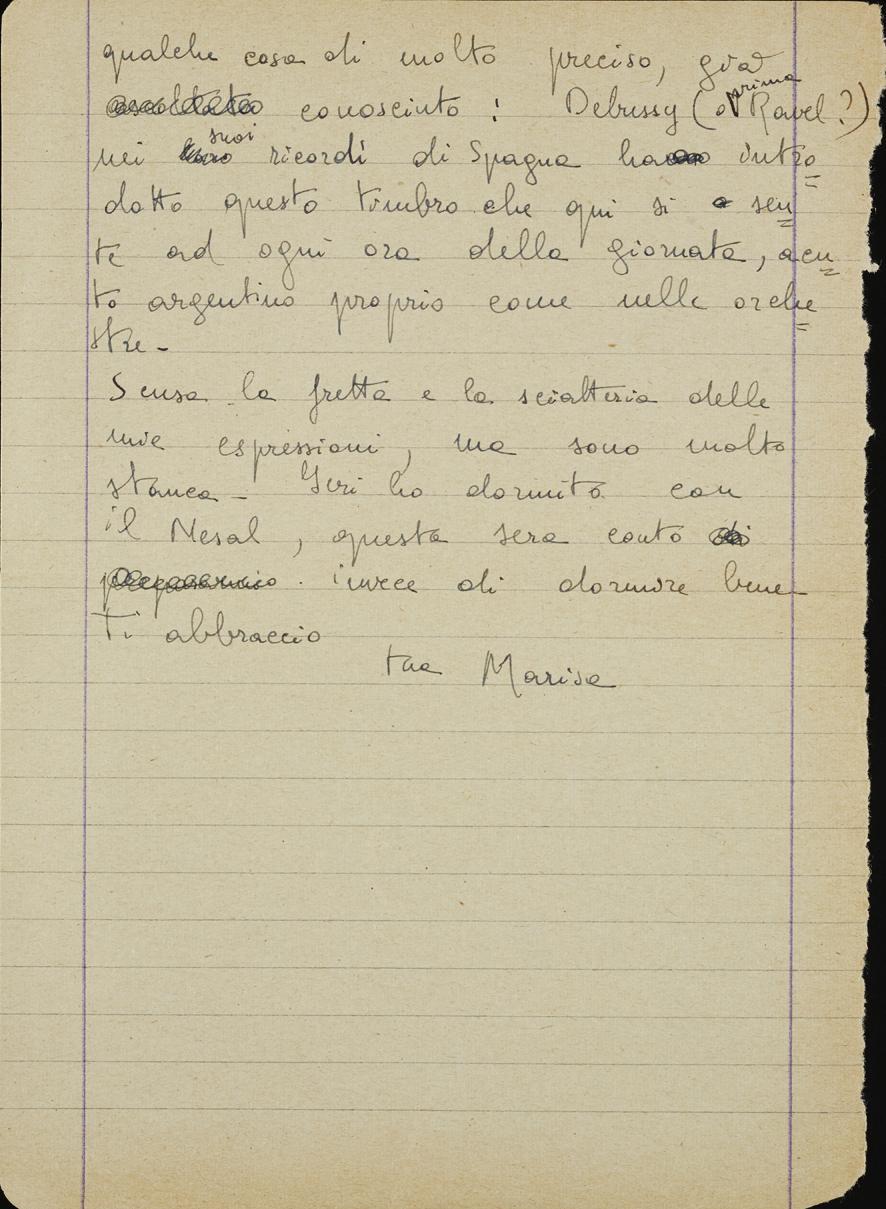 qualche cosa di molto preciso, già
ascoltato conosciuto! Debussy (o prima Ravel?)
nei loro suoi ricordi di Spagna hanno intro
dotto questo timbro che qui si sen
te ad ogni ora della giornata, acu
to argentino proprio come nelle orche
stre -
Scusa la fretta e la sciatteria delle
mie espressioni, ma sono molto
stanca - Ieri ho dormito con
il Nesal, questa sera conto di
invece di dormire bene -
Ti abbraccio
tua Marisa